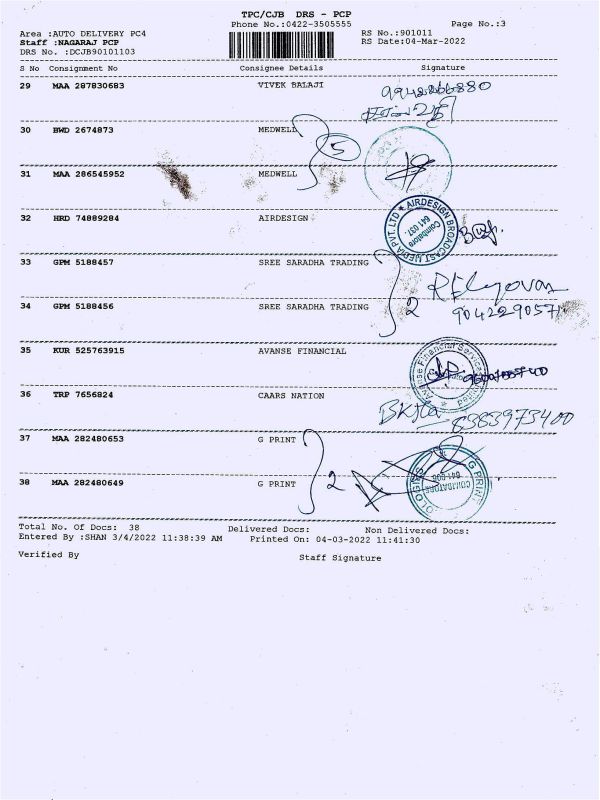 TPC/CJB DRS - PCP
Phone No.:0422-3505555
Page No.:3
Area :AUTO DELIVERY PC4
RS No.:901011
Staff :NAGARAJ PCP
RS Date:04-Mar-2022
DRS No. :DCJB90101103
S No Consignment No Consignee Details Signature
29 MAA 287830683 VIVEK BALAJI
30 BWD 2674873 MEDWELL
5
31 MAA 286545952 MEDWELL
32 HRD 74889284 AIRDESIGN
AIRDESIGN BROADCAST MEDIA PVT. LTD ★
Coimbatore
641 037.
33 GPM 5188457 SREE SARADHA TRADING
34 GPM 5188456 SREE SARADHA TRADING
2
9042290571
35 KUR 525763915 AVANSE FINANCIAL
Avanse Financial Services Limited
36 TRP 7656824 CAARS NATION
8383973400
37 MAA 282480653 G PRINT
38 MAA 282480649 G PRINT
2
G PRINT
COIMBATORE
Total No. Of Docs: 38 Delivered Docs: Non Delivered Docs:
Entered By :SHAN 3/4/2022 11:38:39 AM Printed On: 04-03-2022 11:41:30
Verified By Staff Signature